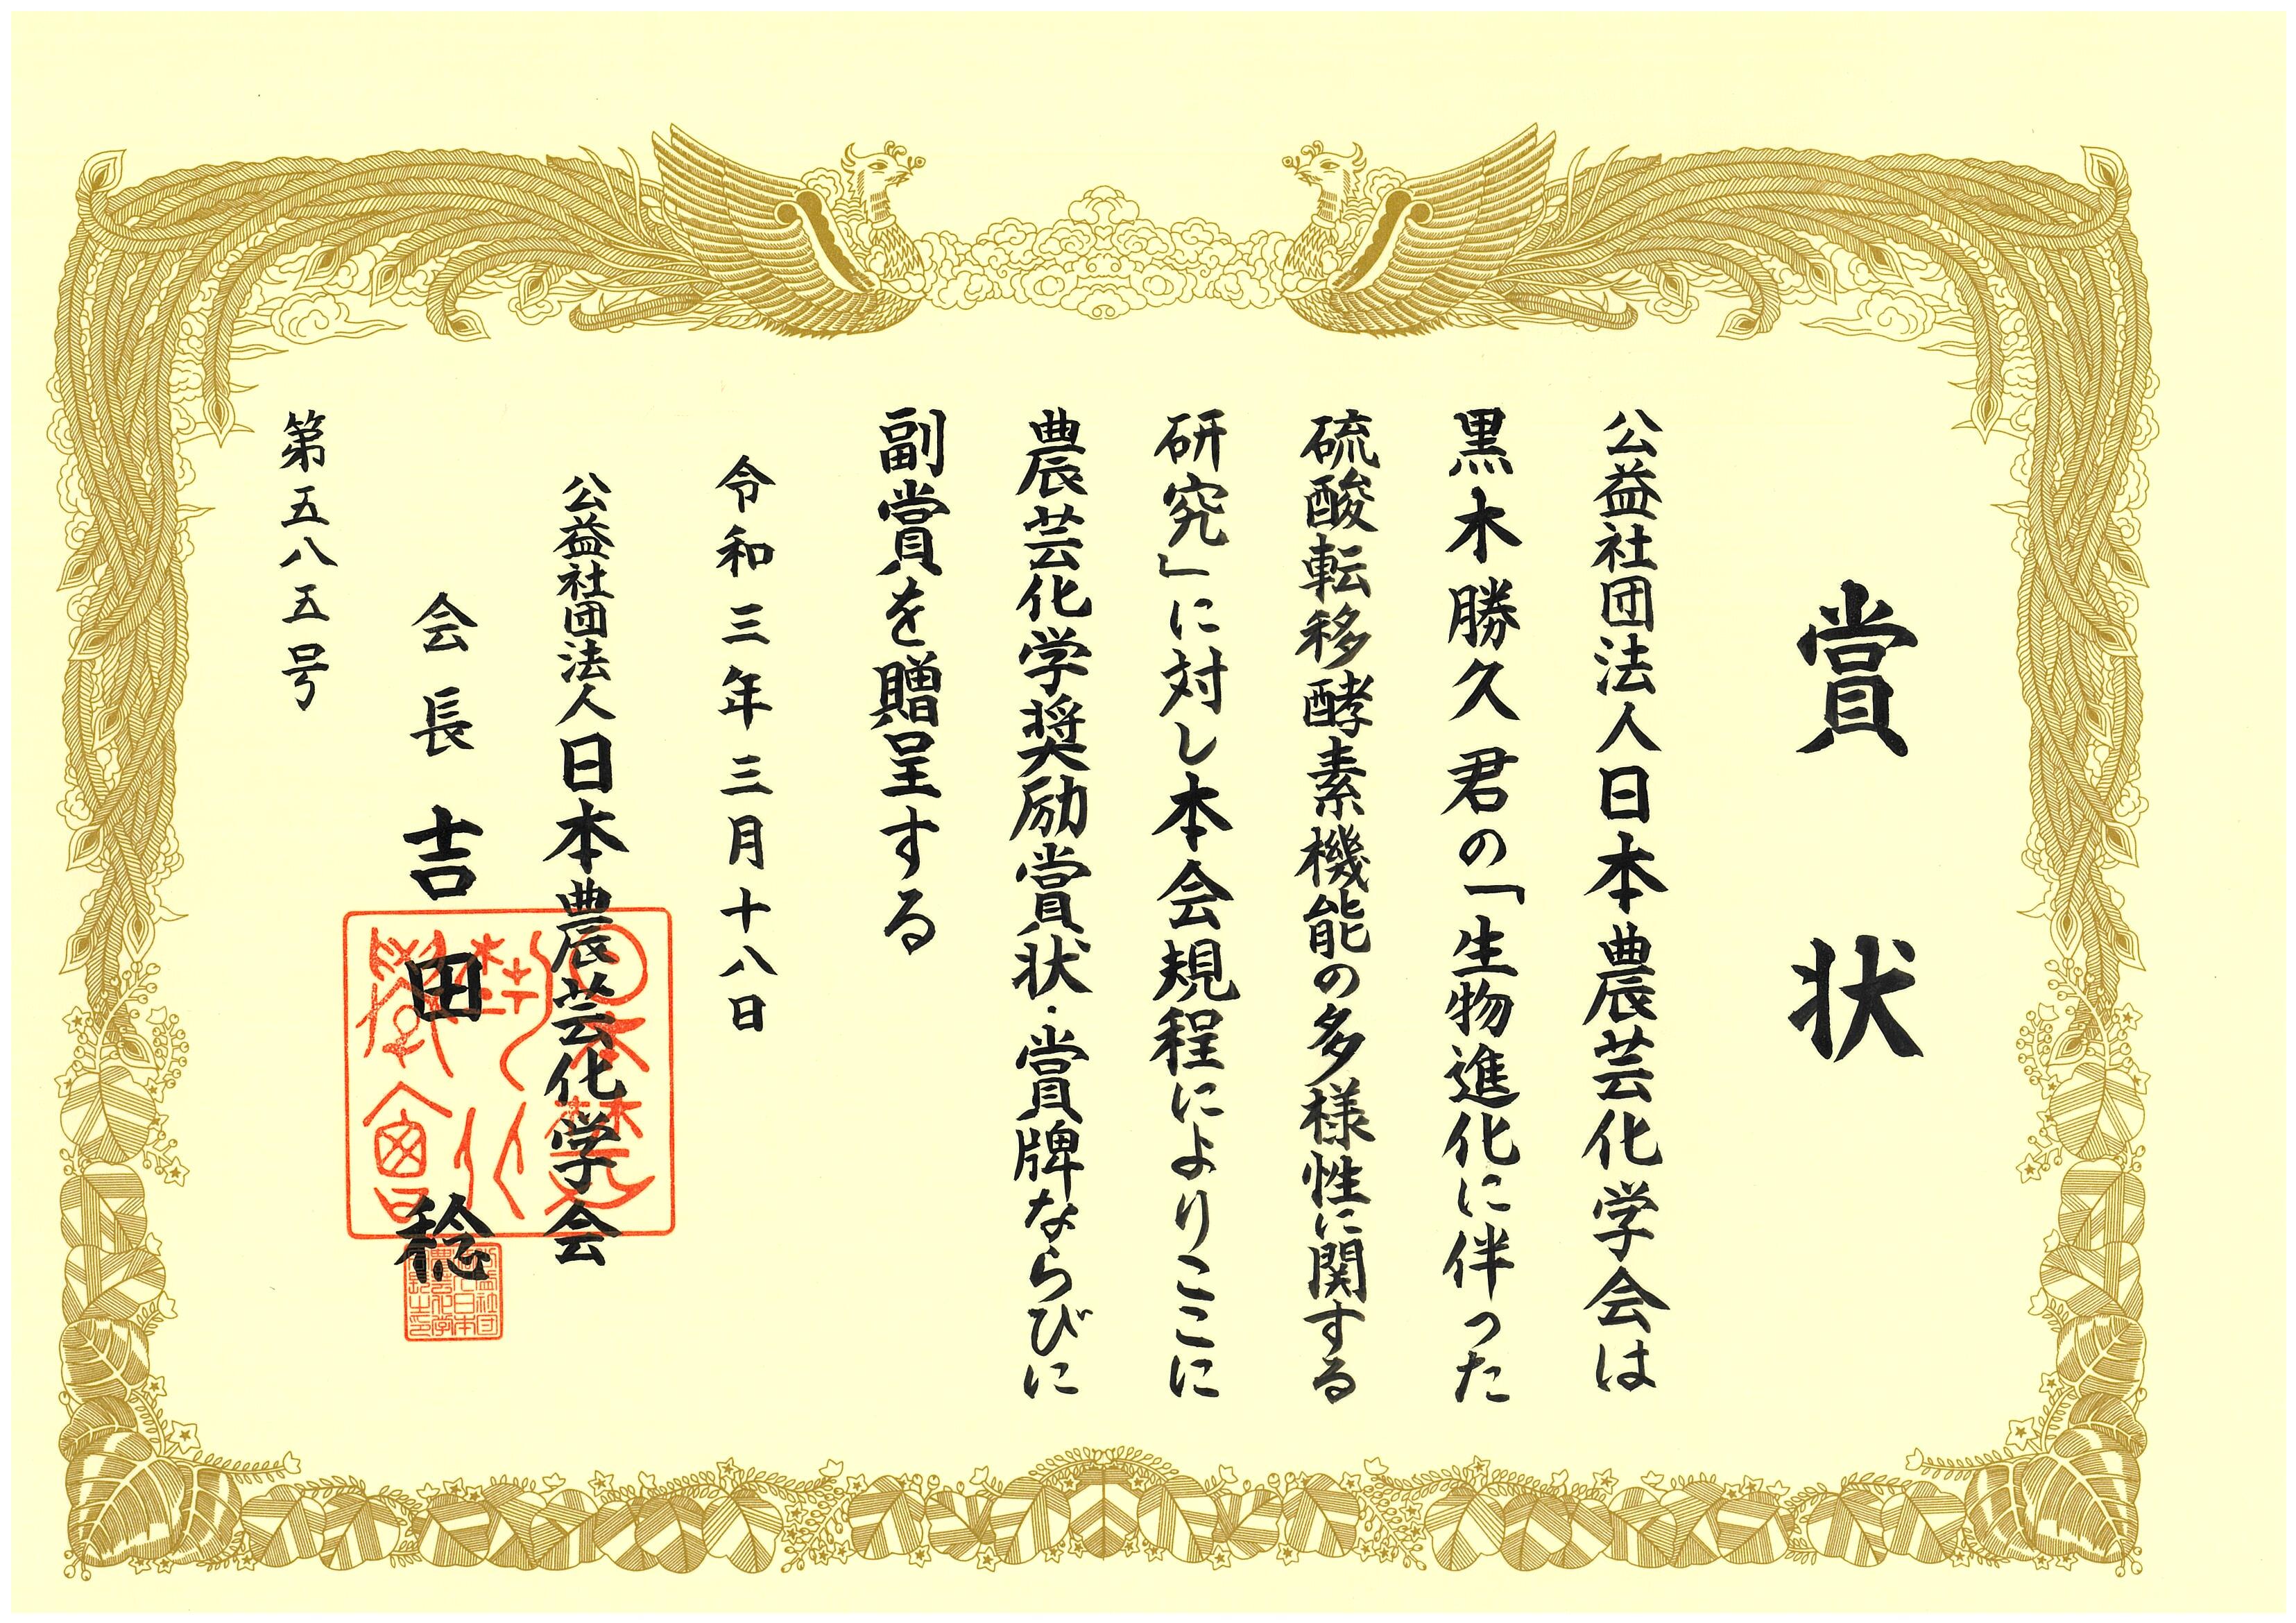 賞状
公益社団法人日本農芸化学会は
黒木勝久君の「生物進化に伴った
硫酸転移酵素機能の多様性に関する
研究」に対し本会規程によりここに
農芸化学奨励賞状・賞牌ならびに
副賞を贈呈する
令和三年三月十八日
公益社団法人日本農芸化学会
会長吉田稔
第五八五号